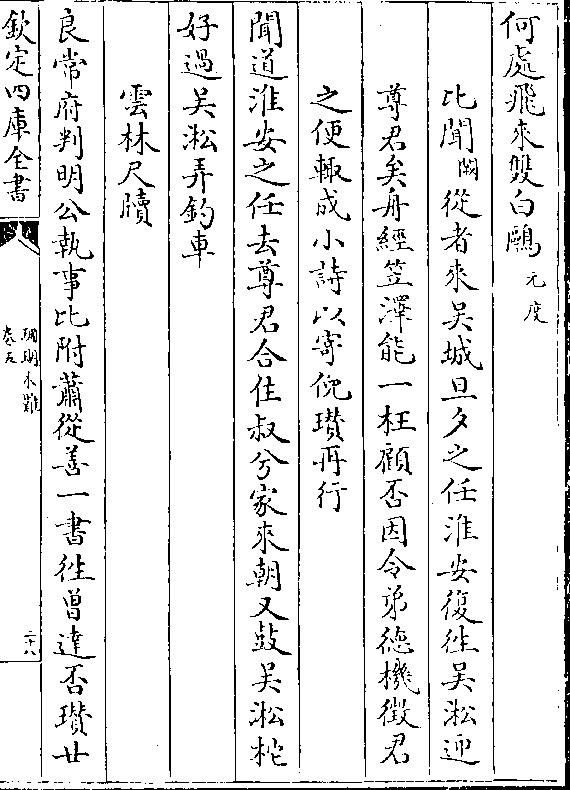 何處飛來雙白鷳元度
比聞闕從者來吳城旦夕之任淮安復往吳淞迎
尊君矣舟經笠澤能一枉顧否因令弟德機徴君
之便輙成小詩以寄倪瓚再行
聞道淮安之任去尊君合住叔兮家來朝又鼓吳淞柁
好過吳淞弄釣車
雲林尺牘
良常府判明公執事比附蕭從善一書徃曽達否瓚廿
欽定四庫全書
珊瑚木難
卷五
二十八